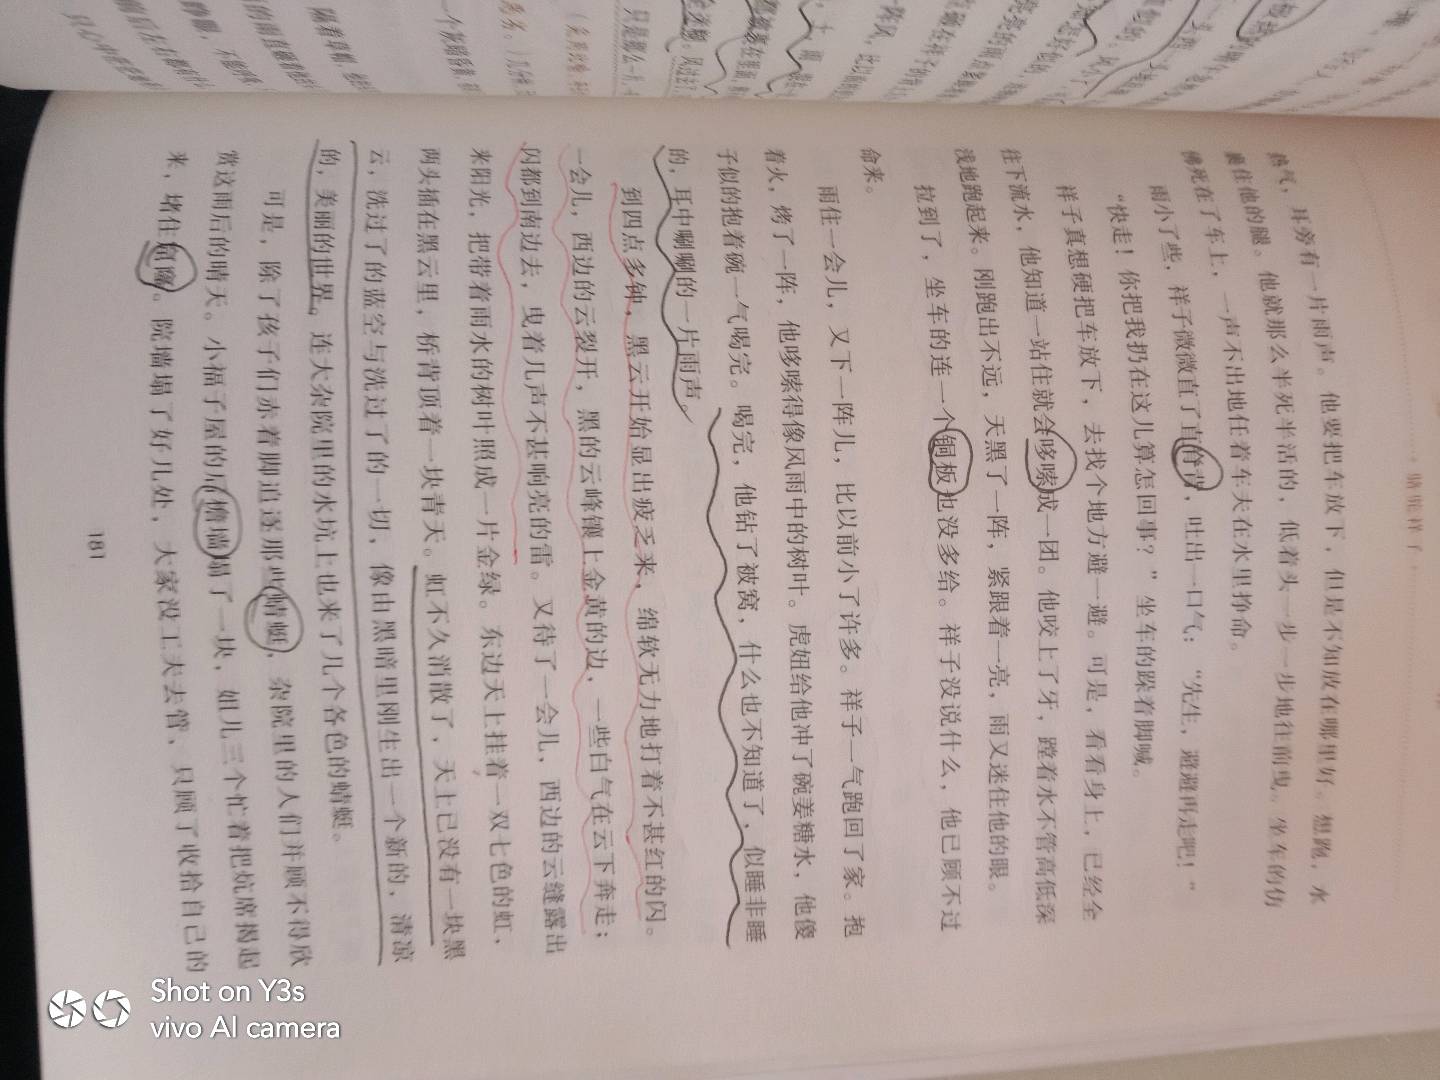 ·骆驼祥子·
热气，耳旁有一片雨声。他要把车放下，但是不知放在哪里好。想跑，水
裹住他的腿。他就那么半死半活的，低着头一步一步地往前曳。坐车的仿
佛死在了车上，一声不出地任着车夫在水里挣命。
雨小了些，祥子微微直了直脊背，吐出一口气：“先生，避避再走吧！”
“快走！你把我扔在这儿算怎回事？”坐车的跺着脚喊。
祥子真想硬把车放下，去找个地方避一避。可是，看看身上，已经全
往下流水，他知道一站住就会哆嗦成一团。他咬上了牙，蹚着水不管高低深
浅地跑起来。刚跑出不远，天黑了一阵，紧跟着一亮，雨又迷住他的眼。
拉到了，坐车的连一个铜板也没多给。祥子没说什么，他已顾不过
命来。
雨住一会儿，又下一阵儿，比以前小了许多。祥子一气跑回了家。抱
着火，烤了一阵，他哆嗦得像风雨中的树叶。虎妞给他冲了碗姜糖水，他傻
子似的抱着碗一气喝完。喝完，他钻了被窝，什么也不知道了，似睡非睡
的，耳中唰唰的一片雨声。
到四点多钟，黑云开始显出疲乏来，绵软无力地打着不甚红的闪。
一会儿，西边的云裂开，黑的云峰镶上金黄的边，一些白气在云下奔走；
闪都到南边去，曳着几声不甚响亮的雷。又待了一会儿，西边的云缝露出
来阳光，把带着雨水的树叶照成一片金绿。东边天上挂着一双七色的虹，
两头插在黑云里，桥背顶着一块青天。虹不久消散了，天上已没有一块黑
云，洗过了的蓝空与洗过了的一切，像由黑暗里刚生出一个新的，清凉
的，美丽的世界。连大杂院里的水坑上也来了几个各色的蜻蜓。
可是，除了孩子们赤着脚追逐那些蜻蜓，杂院里的人们并顾不得欣
赏这雨后的晴天。小福子屋的后檐墙塌了一块，姐儿三个忙着把炕席揭起
来，堵住窟窿。院墙塌了好几处，大家没工夫去管，只顾了收拾自己的
181
Shot on Y3s
vivo AI camera